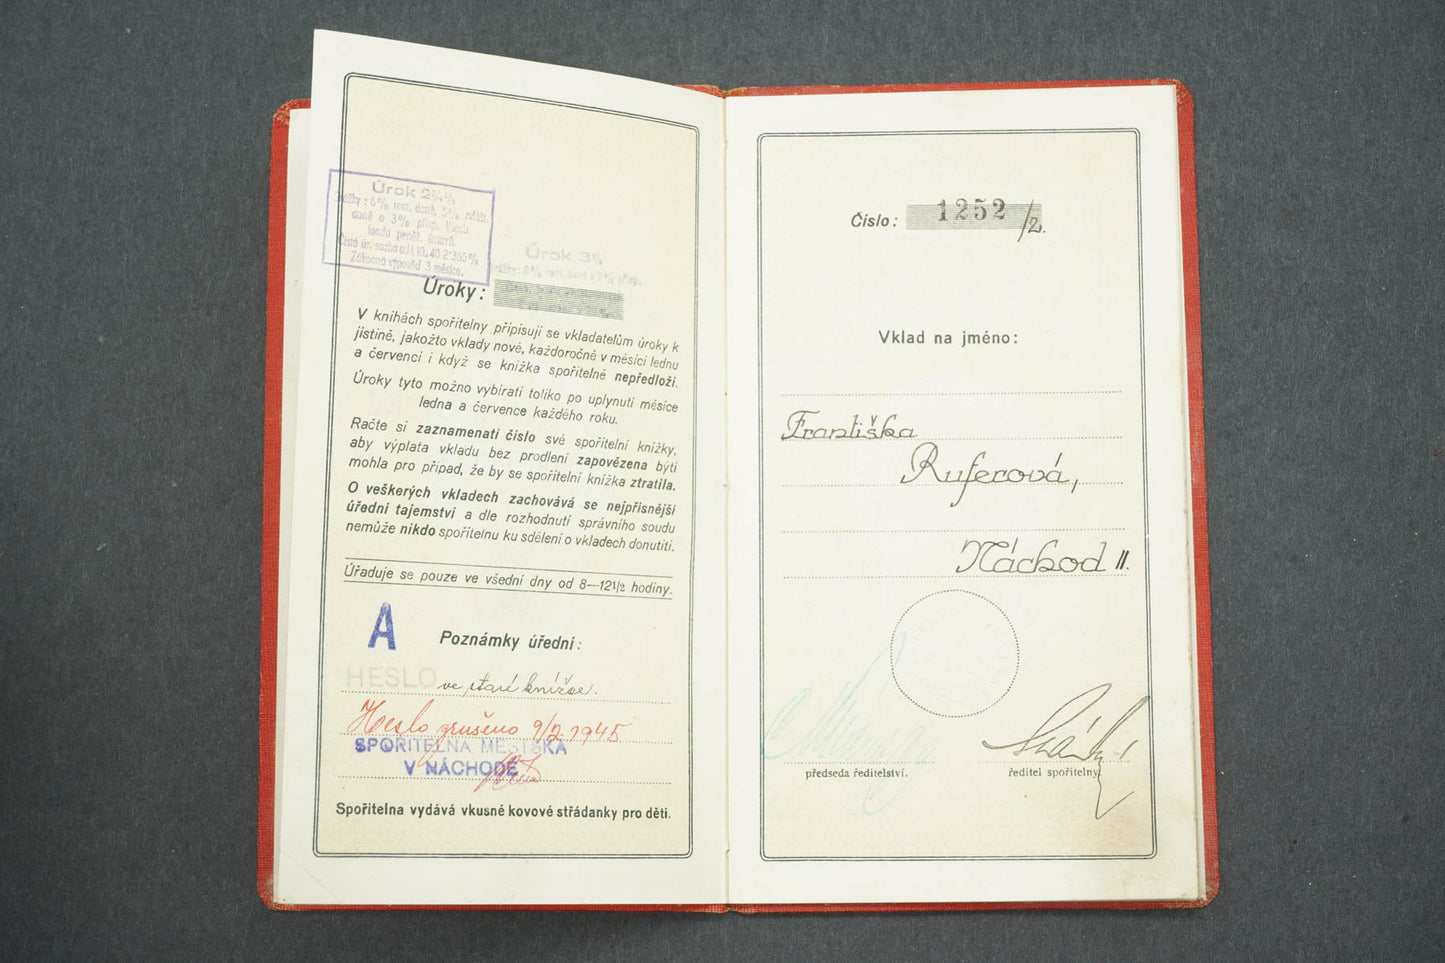 Úrok 2¾%
Srážky: 6% rent. daně, 5% zvlášt.
daně a 3% přísp. Všeob.
fondu peněž. ústavů.
Čistá úr. sazba od 1.10.40 2·365%
Zákonná výpověď 3 měsíce.
Úrok 3%
Srážky: 6% rent. daně a 3% přísp.
Úroky:
V knihách spořitelny připisují se vkladatelům úroky k
jistině, jakožto vklady nové, každoročně v měsíci lednu
a červenci i když se knížka spořitelně nepředloží.
Úroky tyto možno vybírati toliko po uplynutí měsíce
ledna a července každého roku.
Račte si zaznamenati číslo své spořitelní knížky,
aby výplata vkladu bez prodlení zapovězena býti
mohla pro případ, že by se spořitelní knížka ztratila.
O veškerých vkladech zachovává se nejpřísnější
úřední tajemství a dle rozhodnutí správního soudu
nemůže nikdo spořitelnu ku sdělení o vkladech donutiti.
Úřaduje se pouze ve všední dny od 8—12½ hodiny.
A
Poznámky úřední:
HESLO ve staré knížce.
Heslo zrušeno 9/2 1945
SPOŘITELNA MĚSTSKÁ
V NÁCHODĚ
Spořitelna vydává vkusné kovové střádanky pro děti.
Číslo: 1252/2.
Vklad na jméno:
Františka
Ruferová,
Náchod II.
předseda ředitelství.
ředitel spořitelny.